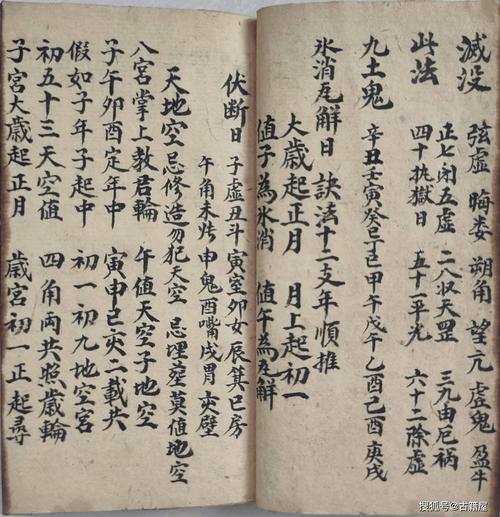 滅没 弦虚 晦娄 朔角 望亢 虚鬼 盈牛
此法 正七闭五虚 二八収天罡 三九由厄祸
四十执獄日 五十一平光 六十二除虚
九土鬼 辛丑壬寅癸巳丁巳甲午戊午乙酉己酉庚戌
氷消瓦解日 訣法十二支年順推
大歲起正月 月上起初一
值子為氷消 值午為瓦解
伏断日 子虚丑斗寅室卯女辰箕巳房
午角未张申鬼酉嘴戌胃亥壁
天地空 忌修造勿犯天空 忌埋塟莫值地空
八宮掌上教君輪 午值天空子地空
子午卯酉定年中 寅申巳亥二載共
假如子年子起中 初一初九地空宮
初五十三天空值 四角両共照歲輪
子宮大歲起正月 歲宮初一正起尋
搜狐号@古籍屋